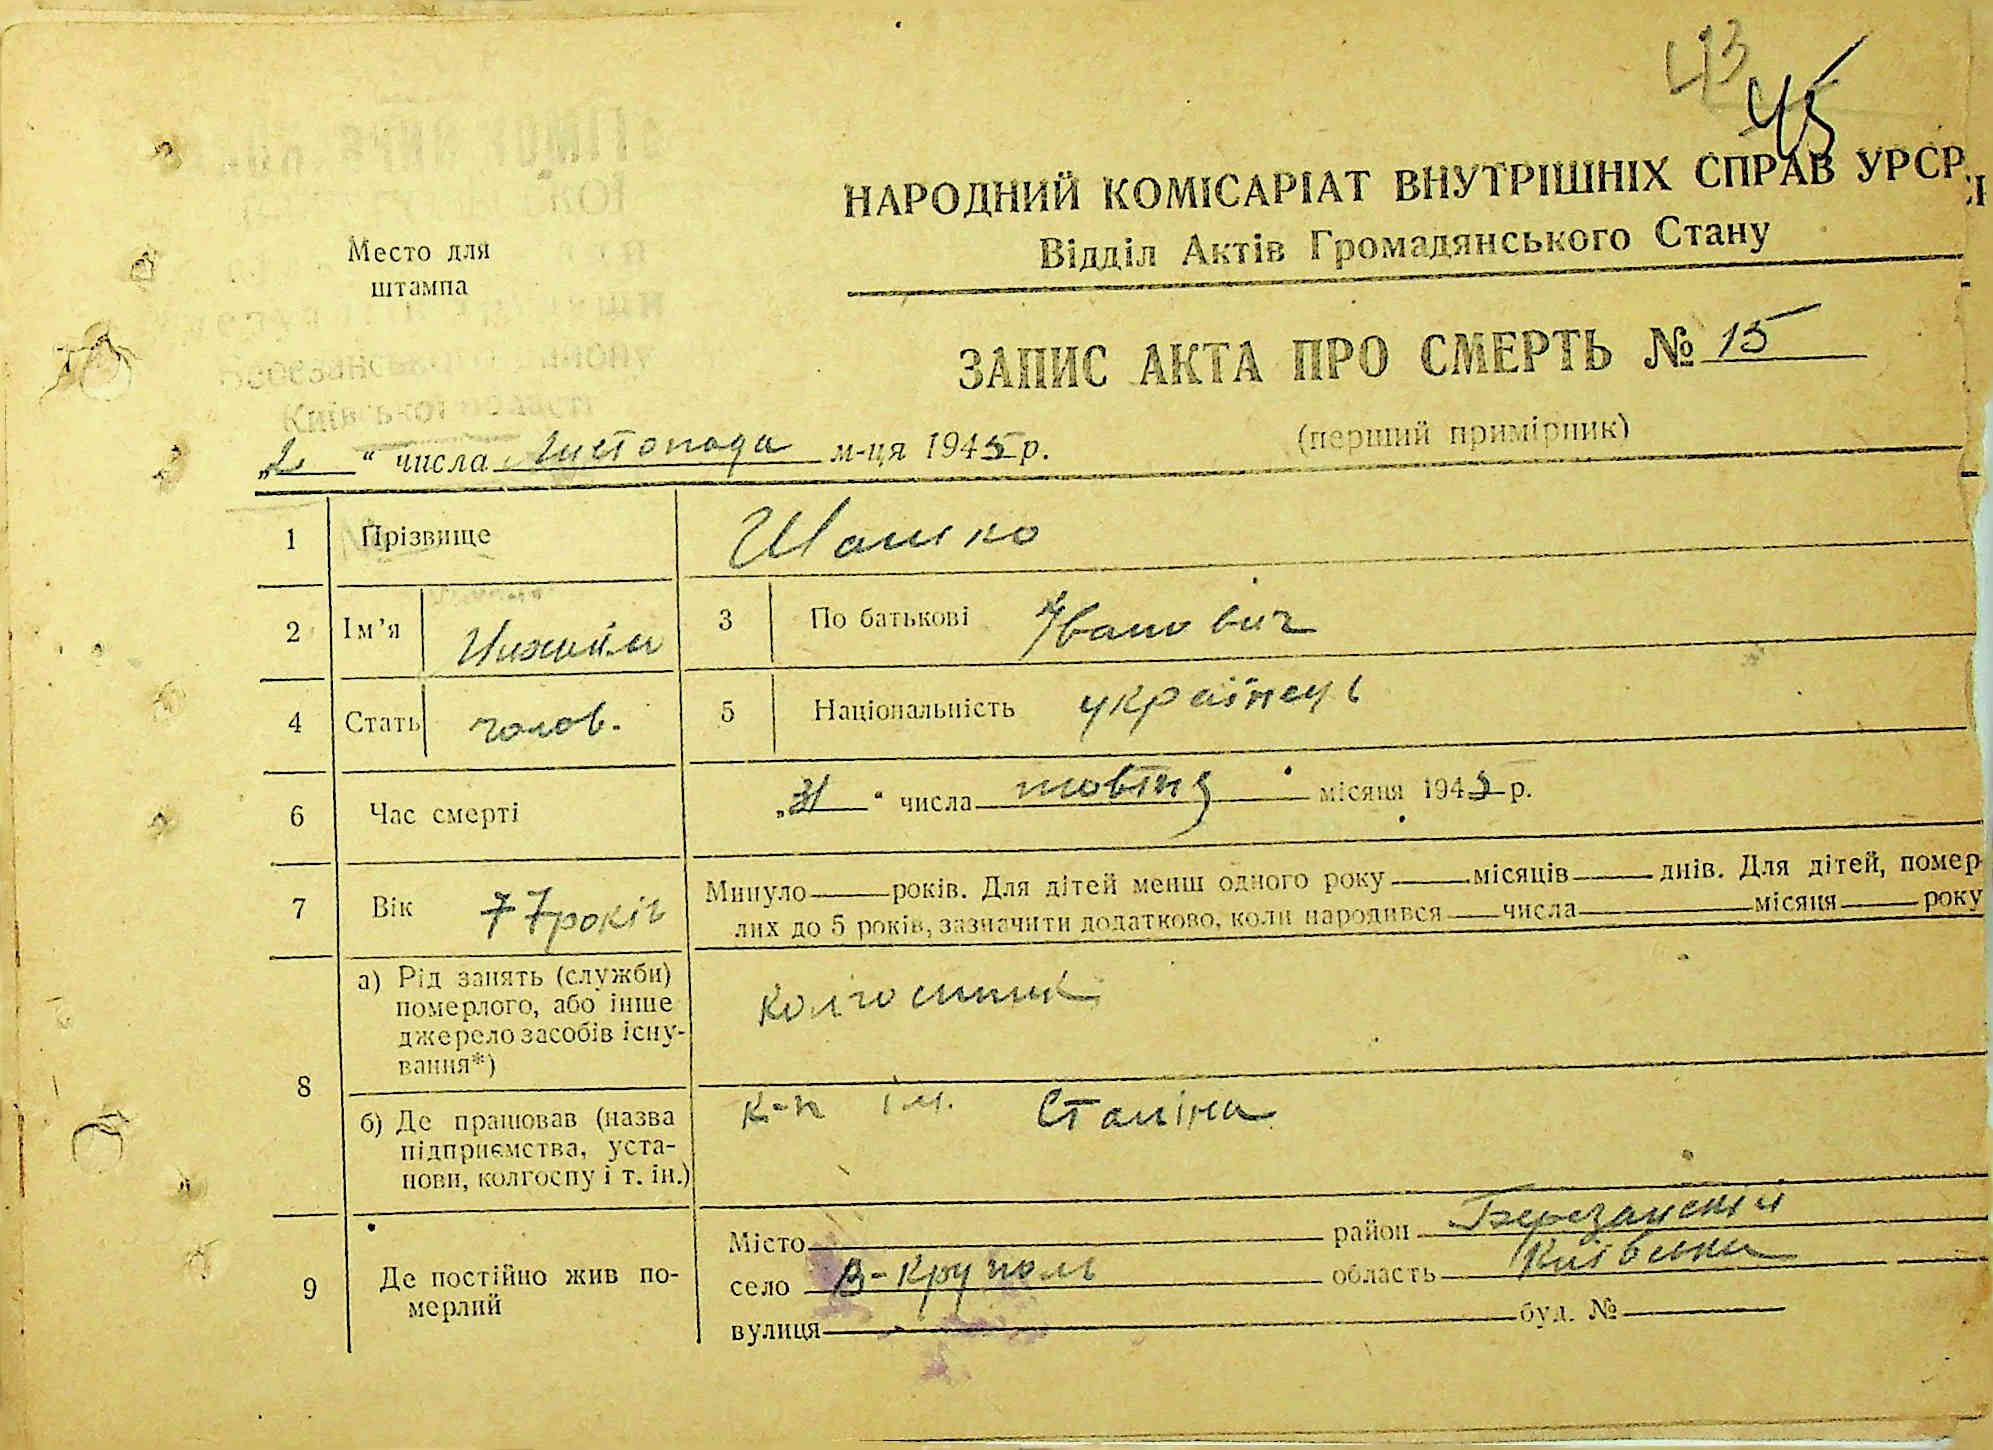 43
45
НАРОДНИЙ КОМІСАРІАТ ВНУТРІШНІХ СПРАВ УРСР
Відділ Актів Громадянського Стану
Место для
штампа
ЗАПИС АКТА ПРО СМЕРТЬ № 15
(перший примірник)
„2“ числа Листопада м-ця 1945 р.
1 Прізвище Шашко
2 Ім'я 3 По батькові Іванович
4 Стать чолов. 5 Національність українець
6 Час смерті „31“ числа жовтня місяця 1945 р.
7 Вік 77 років Минуло років. Для дітей менш одного року місяців днів. Для дітей, помер-
лих до 5 років, зазначити додатково, коли народився числа місяця року
8 а) Рід занять (служби)
померлого, або інше
джерело засобів існу-
вання*) колгоспник
б) Де працював (назва
підприємства, уста-
нови, колгоспу і т. ін.) к-п ім. Сталіна
9 Де постійно жив по-
мерлий
Місто район Березанський
село В-Круполь область Київська
вулиця буд. №